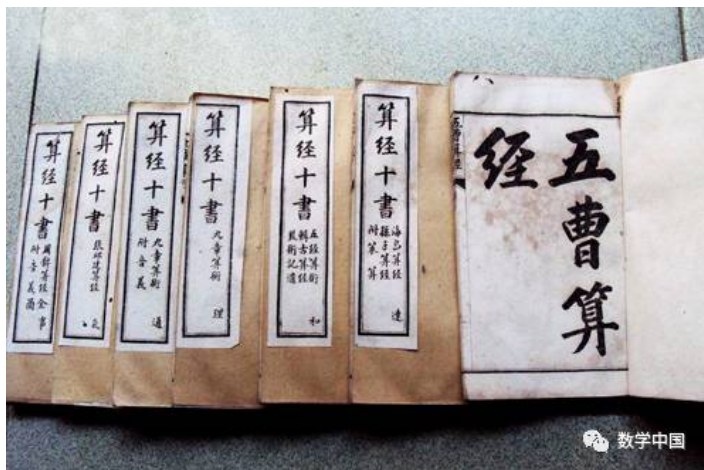 算经十書
周髀算经全
附音義
算经十書
張邱建算经
算经十書
九章算術
附音義
通
算经十書
九章算術
理
算经十書
五经算術
輯古算经
数術記遺
和
算经十書
海島算经
孫子算经
附策算
達
五曹算经
五曹算
经
数学中国